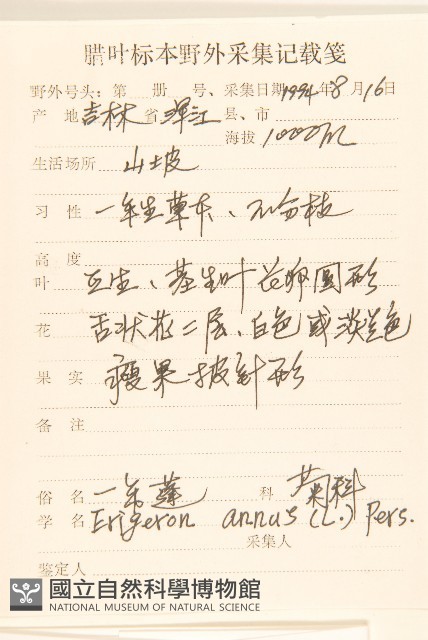 腊叶标本野外采集记载笺
野外号头：第 册 号、采集日期1994年8月16日
产 地吉林省浑江县、市
海拔1000m
生活场所 山坡
习 性 一年生草本、不分枝
高 度
叶 互生、基生叶 卵圆形
花 舌状花二层、白色或淡兰色
果 实 瘦果披针形
备 注
俗 名 一年蓬 科 菊科
学 名 Erigeron annus (L.) Pers.
采集人
鉴定人
國立自然科學博物館
NATIONAL MUSEUM OF NATURAL SCIENCE